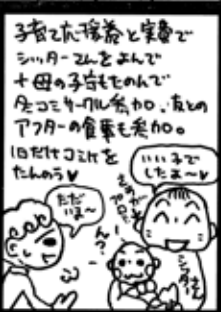 子育て応援券と実費で
シッターさんをよんで
+母の子守もたのんで
全コミサークル参加、友との
アフターの食事も参加。
1日だけコミケを
たんのう♥
いい子で
したよ〜♥
さすが
プロ!
ただ
いま〜
ん?
シッターさん